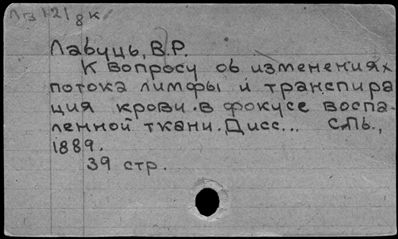 Лабуць, В.Р.
К вопросу об изменениях
потока лимфы и транспира
ция крови в фокусе воспа-
ленной ткани. Дисс... С.Пь.,
1889.
39 стр.